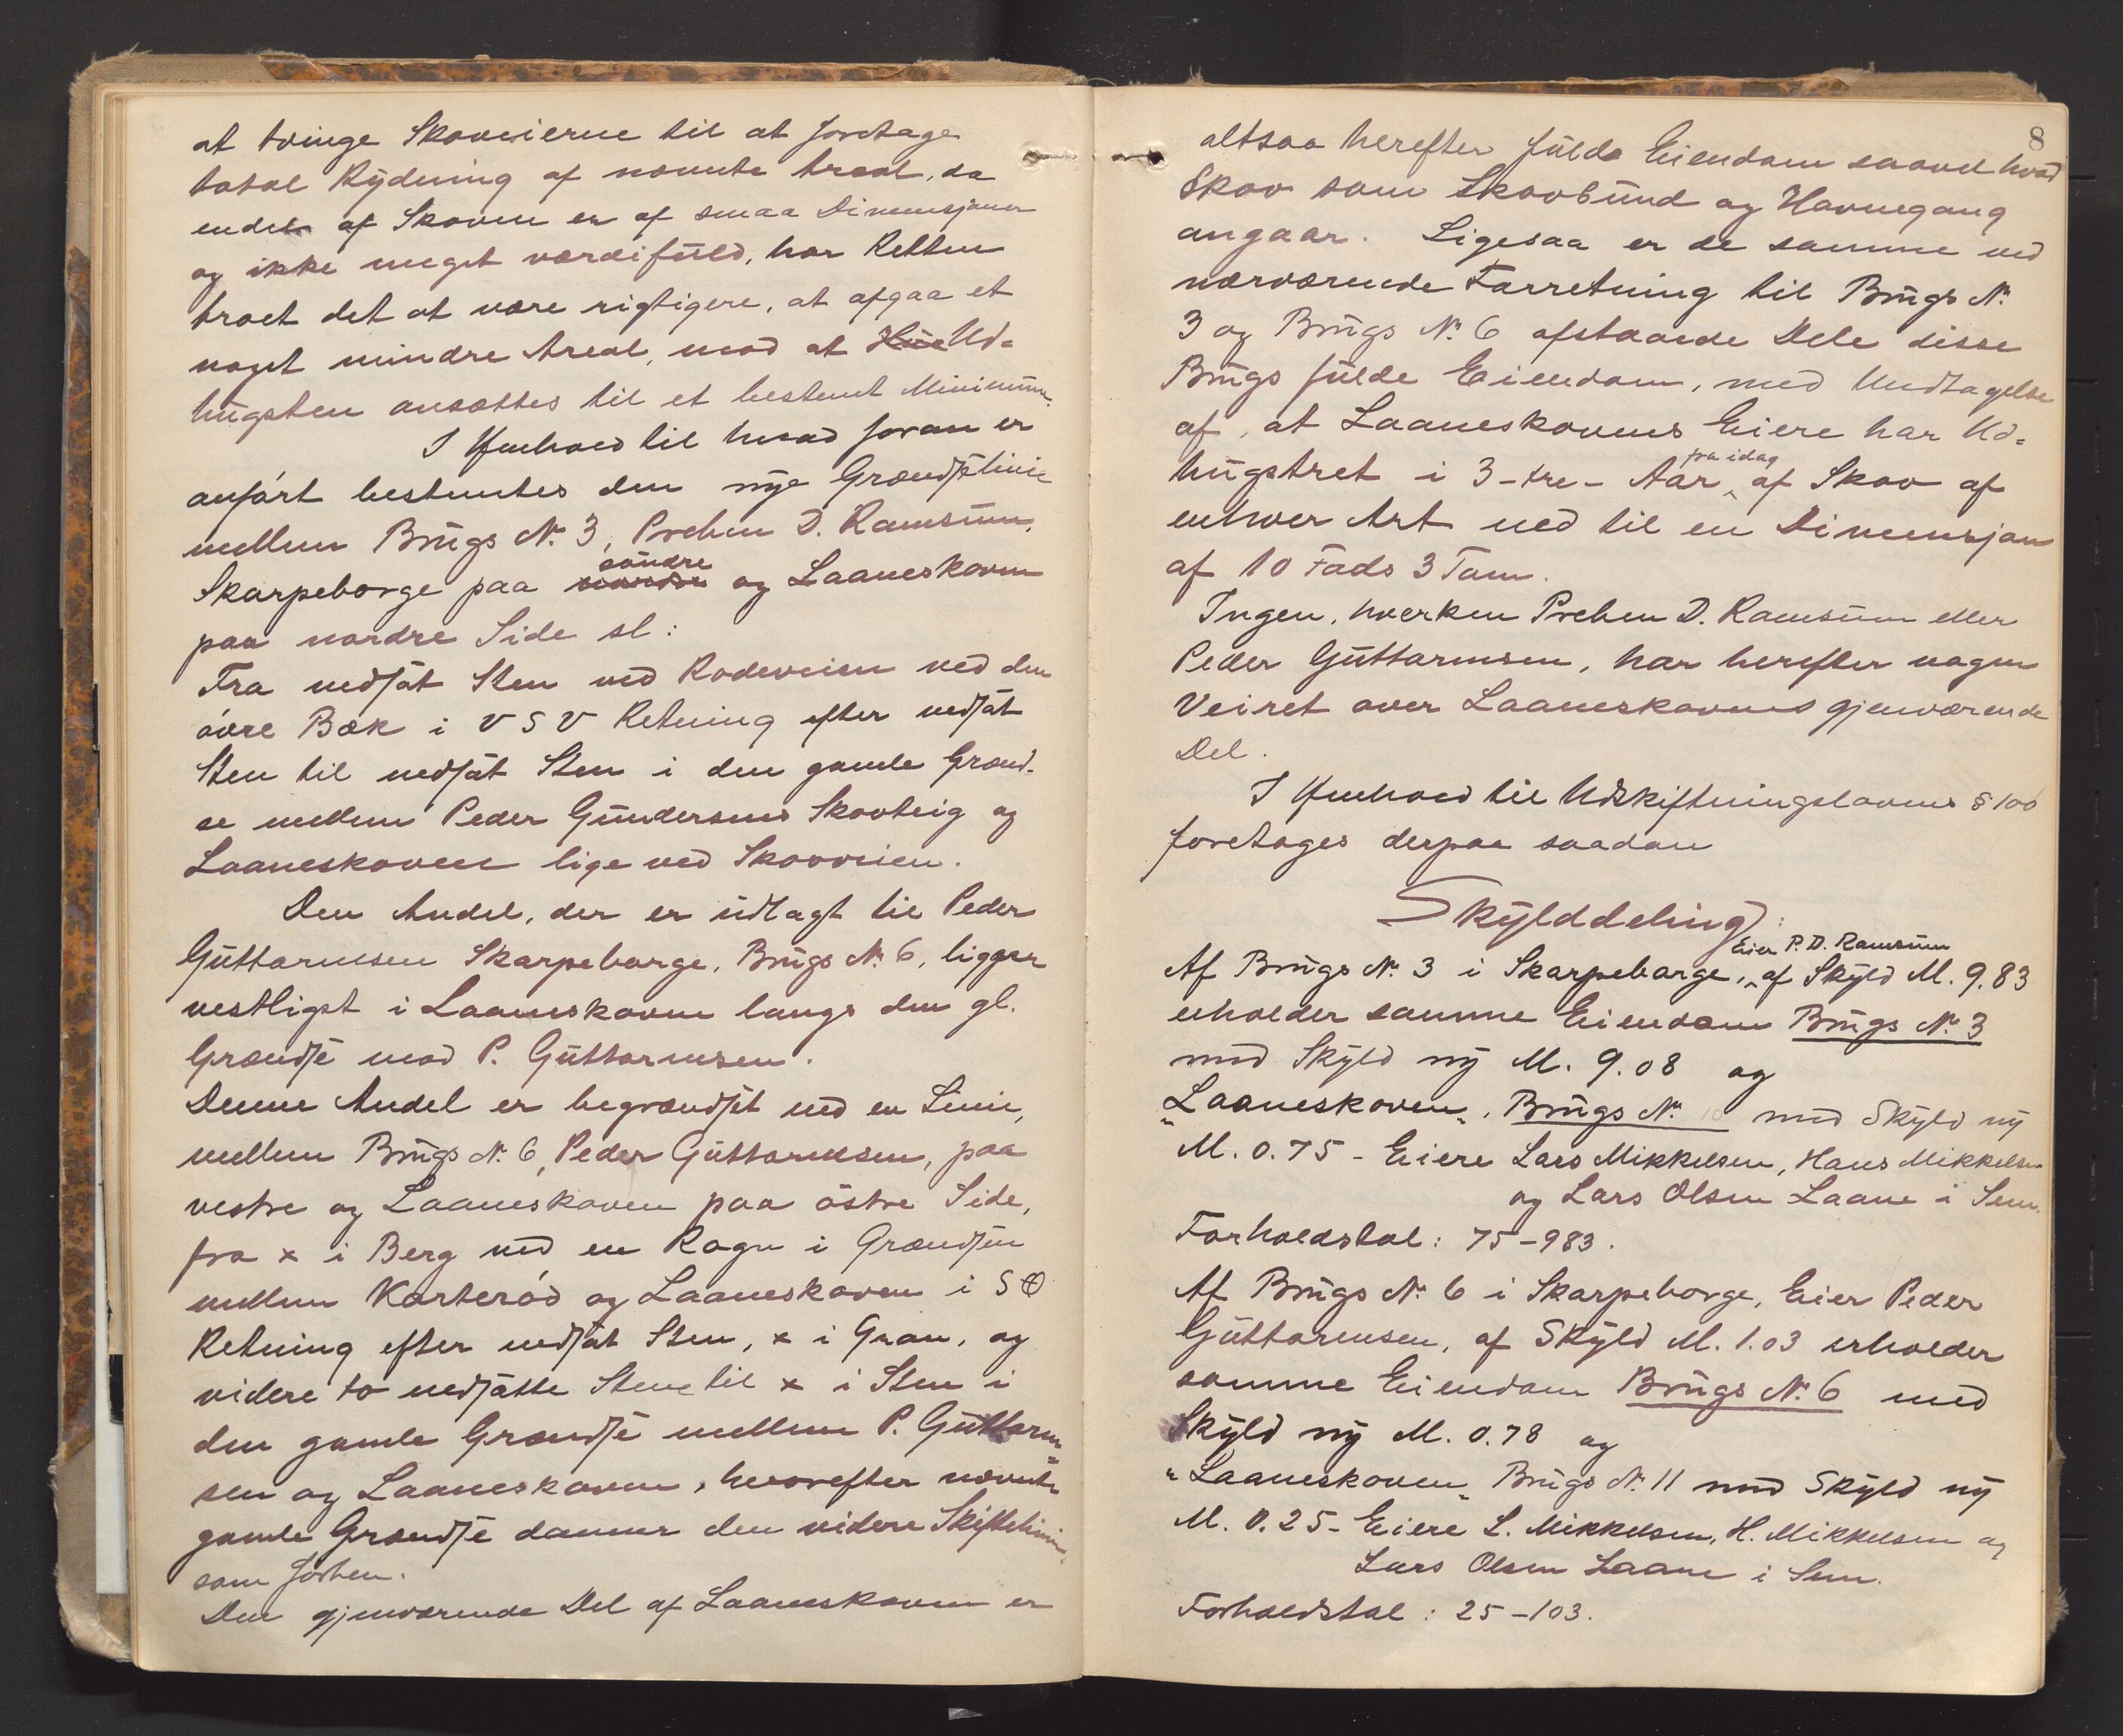 at tvinge Skoveierne til at foretage
total Rydning af nævnte Areal, da
endel af Skoven er af smaa Dimensjoner
og ikke meget værdifuld, har Retten
troet det at være rigtigere, at afgaa et
noget mindre Areal, mod at Ud-
hugsten ansættes til et bestemt Minimum.
I Henhold til hvad foran er
anført bestemtes den nye Grændselinie
mellem Brugs No. 3, Preben D. Ramsum,
Skarpeborge paa nordre søndre og Laaneskoven
paa nordre Side sl:
Fra nedsat Sten ved Rodeveien ved den
øvre Bæk i V S V Retning efter nedsat
Sten til nedsat Sten i den gamle Grænd-
se mellem Peder Gundersens Skovteig og
Laaneskoven lige ved Skovveien.
Den Andel, der er udlagt til Peder
Guttormsen Skarpeborge, Brugs No. 6, ligger
vestligst i Laaneskoven langs den gl.
Grændse mod P. Guttormsen.
Denne Andel er begrændset ved en Linie,
mellem Brugs No. 6, Peder Guttormsen, paa
vestre og Laaneskoven paa østre Side,
fra x i Berg ved en Rogn i Grændsen
mellem Korterød og Laaneskoven i S Ø
Retning efter nedsat Sten, x i Gran, og
videre to nedsatte Stene til x i Sten i
den gamle Grændse mellem P. Guttorm-
sen og Laaneskoven, hvorefter nævnte
gamle Grændse danner den videre Skiftelinie,
som før hen.
Den gjenværende Del af Laaneskoven er
8
altsaa herefter fulde Eiendom saavel hvad
Skov som Skovbund og Havnegang
angaar. Ligesaa er de samme ved
nærværende Forretning til Brugs No.
3 og Brugs No. 6 afstaaede Dele disse
Brugs fulde Eiendom, med Undtagelse
af, at Laaneskovens Eiere har Ud-
hugstret i 3 - tre - Aar fra idag af Skov af
enhver Art ned til en Dimensjon
af 10 Fods 3 Tom.
Ingen, hverken Preben D. Ramsum eller
Peder Guttormsen, har herefter nogen
Veiret over Laaneskovens gjenværende
Del.
I Henhold til Udskiftningslovens § 100
foretages derpaa saadan
Skylddeling:
Af Brugs No. 3 i Skarpeborge, Eier P. D. Ramsum af Skyld M. 9.83
erholder samme Eiendom Brugs No. 3
med Skyld ny M. 9.08 og
"Laaneskoven", Brugs No. 10 med Skyld ny
M. 0.75 - Eiere Lars Mikkelsen, Hans Mikkelsen
og Lars Olsen Laane i Sem.
Forholdstal: 75-983.
Af Brugs No. 6 i Skarpeborge, Eier Peder
Guttormsen, af Skyld M. 1.03 erholder
samme Eiendom Brugs No. 6 med
Skyld ny M. 0.78 og
"Laaneskoven" Brugs No. 11 med Skyld ny
M. 0.25 - Eiere L. Mikkelsen, H. Mikkelsen og
Lars Olsen Laane i Sem.
Forholdstal: 25-103.